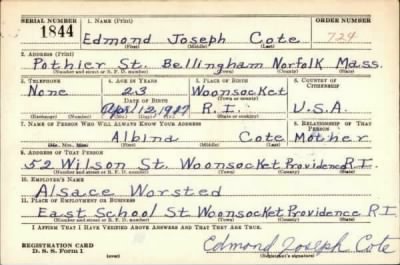 SERIAL NUMBER 1. NAME (Print) ORDER NUMBER
1844 Edmond Joseph Cote 724
(First) (Middle) (Last)
2. ADDRESS (Print)
Pothier St. Bellingham Norfolk Mass.
(Number and street or R. F. D. number) (Town) (County) (State)
3. TELEPHONE 4. AGE IN YEARS 5. PLACE OF BIRTH 6. COUNTRY OF CITIZENSHIP
None 23 Woonsocket
DATE OF BIRTH (Town or county)
April 12, 1917 R.I. U.S.A.
(Mo.) (Day) (Yr.) (State or country)
7. NAME OF PERSON WHO WILL ALWAYS KNOW YOUR ADDRESS 8. RELATIONSHIP OF THAT PERSON
Albina Cote Mother
(Mr., Mrs., Miss) (First) (Middle) (Last)
9. ADDRESS OF THAT PERSON
52 Wilson St. Woonsocket Providence R.I.
(Number and street or R. F. D. number) (Town) (County) (State)
10. EMPLOYER'S NAME
Alsace Worsted
11. PLACE OF EMPLOYMENT OR BUSINESS
East School St. Woonsocket Providence R.I
(Number and street or R. F. D. number) (Town) (County) (State)
I AFFIRM THAT I HAVE VERIFIED ABOVE ANSWERS AND THAT THEY ARE TRUE.
REGISTRATION CARD Edmond Joseph Cote
D. S. S. Form 1 (over) (Registrant's signature)